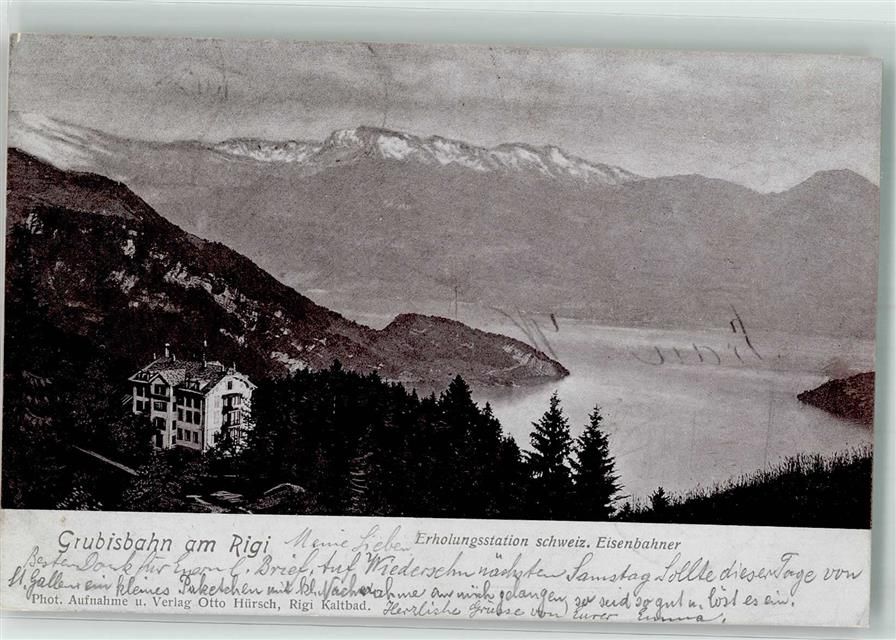 Grubisbahn am Rigi Meine Lieben Erholungsstation schweiz. Eisenbahner
Besten Dank für Euern l. Brief, Auf Wiedersehn nächsten Samstag. Sollte dieser Tage von
St. Gallen ein kleines Paketchen mit kl. Nachnahme an mich gelangen, so seid so gut u. löst es ein.
Phot. Aufnahme u. Verlag Otto Hürsch, Rigi Kaltbad. Herzliche Grüsse von Eurer Emma.